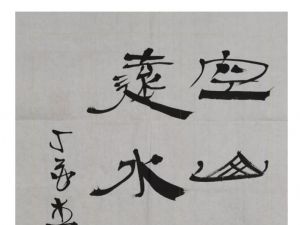 空山
遠水